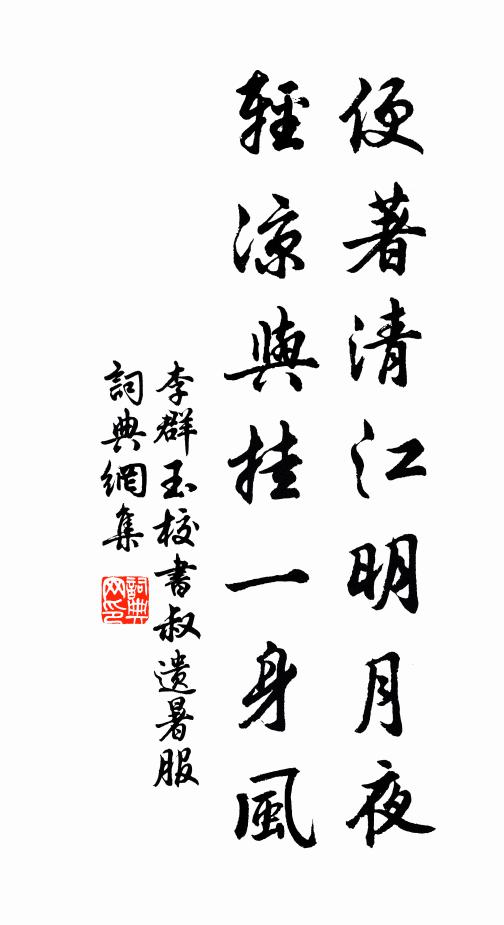 便著清江明月夜
輕涼與挂一身風
李群玉校書叔遺暑服
詞典網集
詞典網印